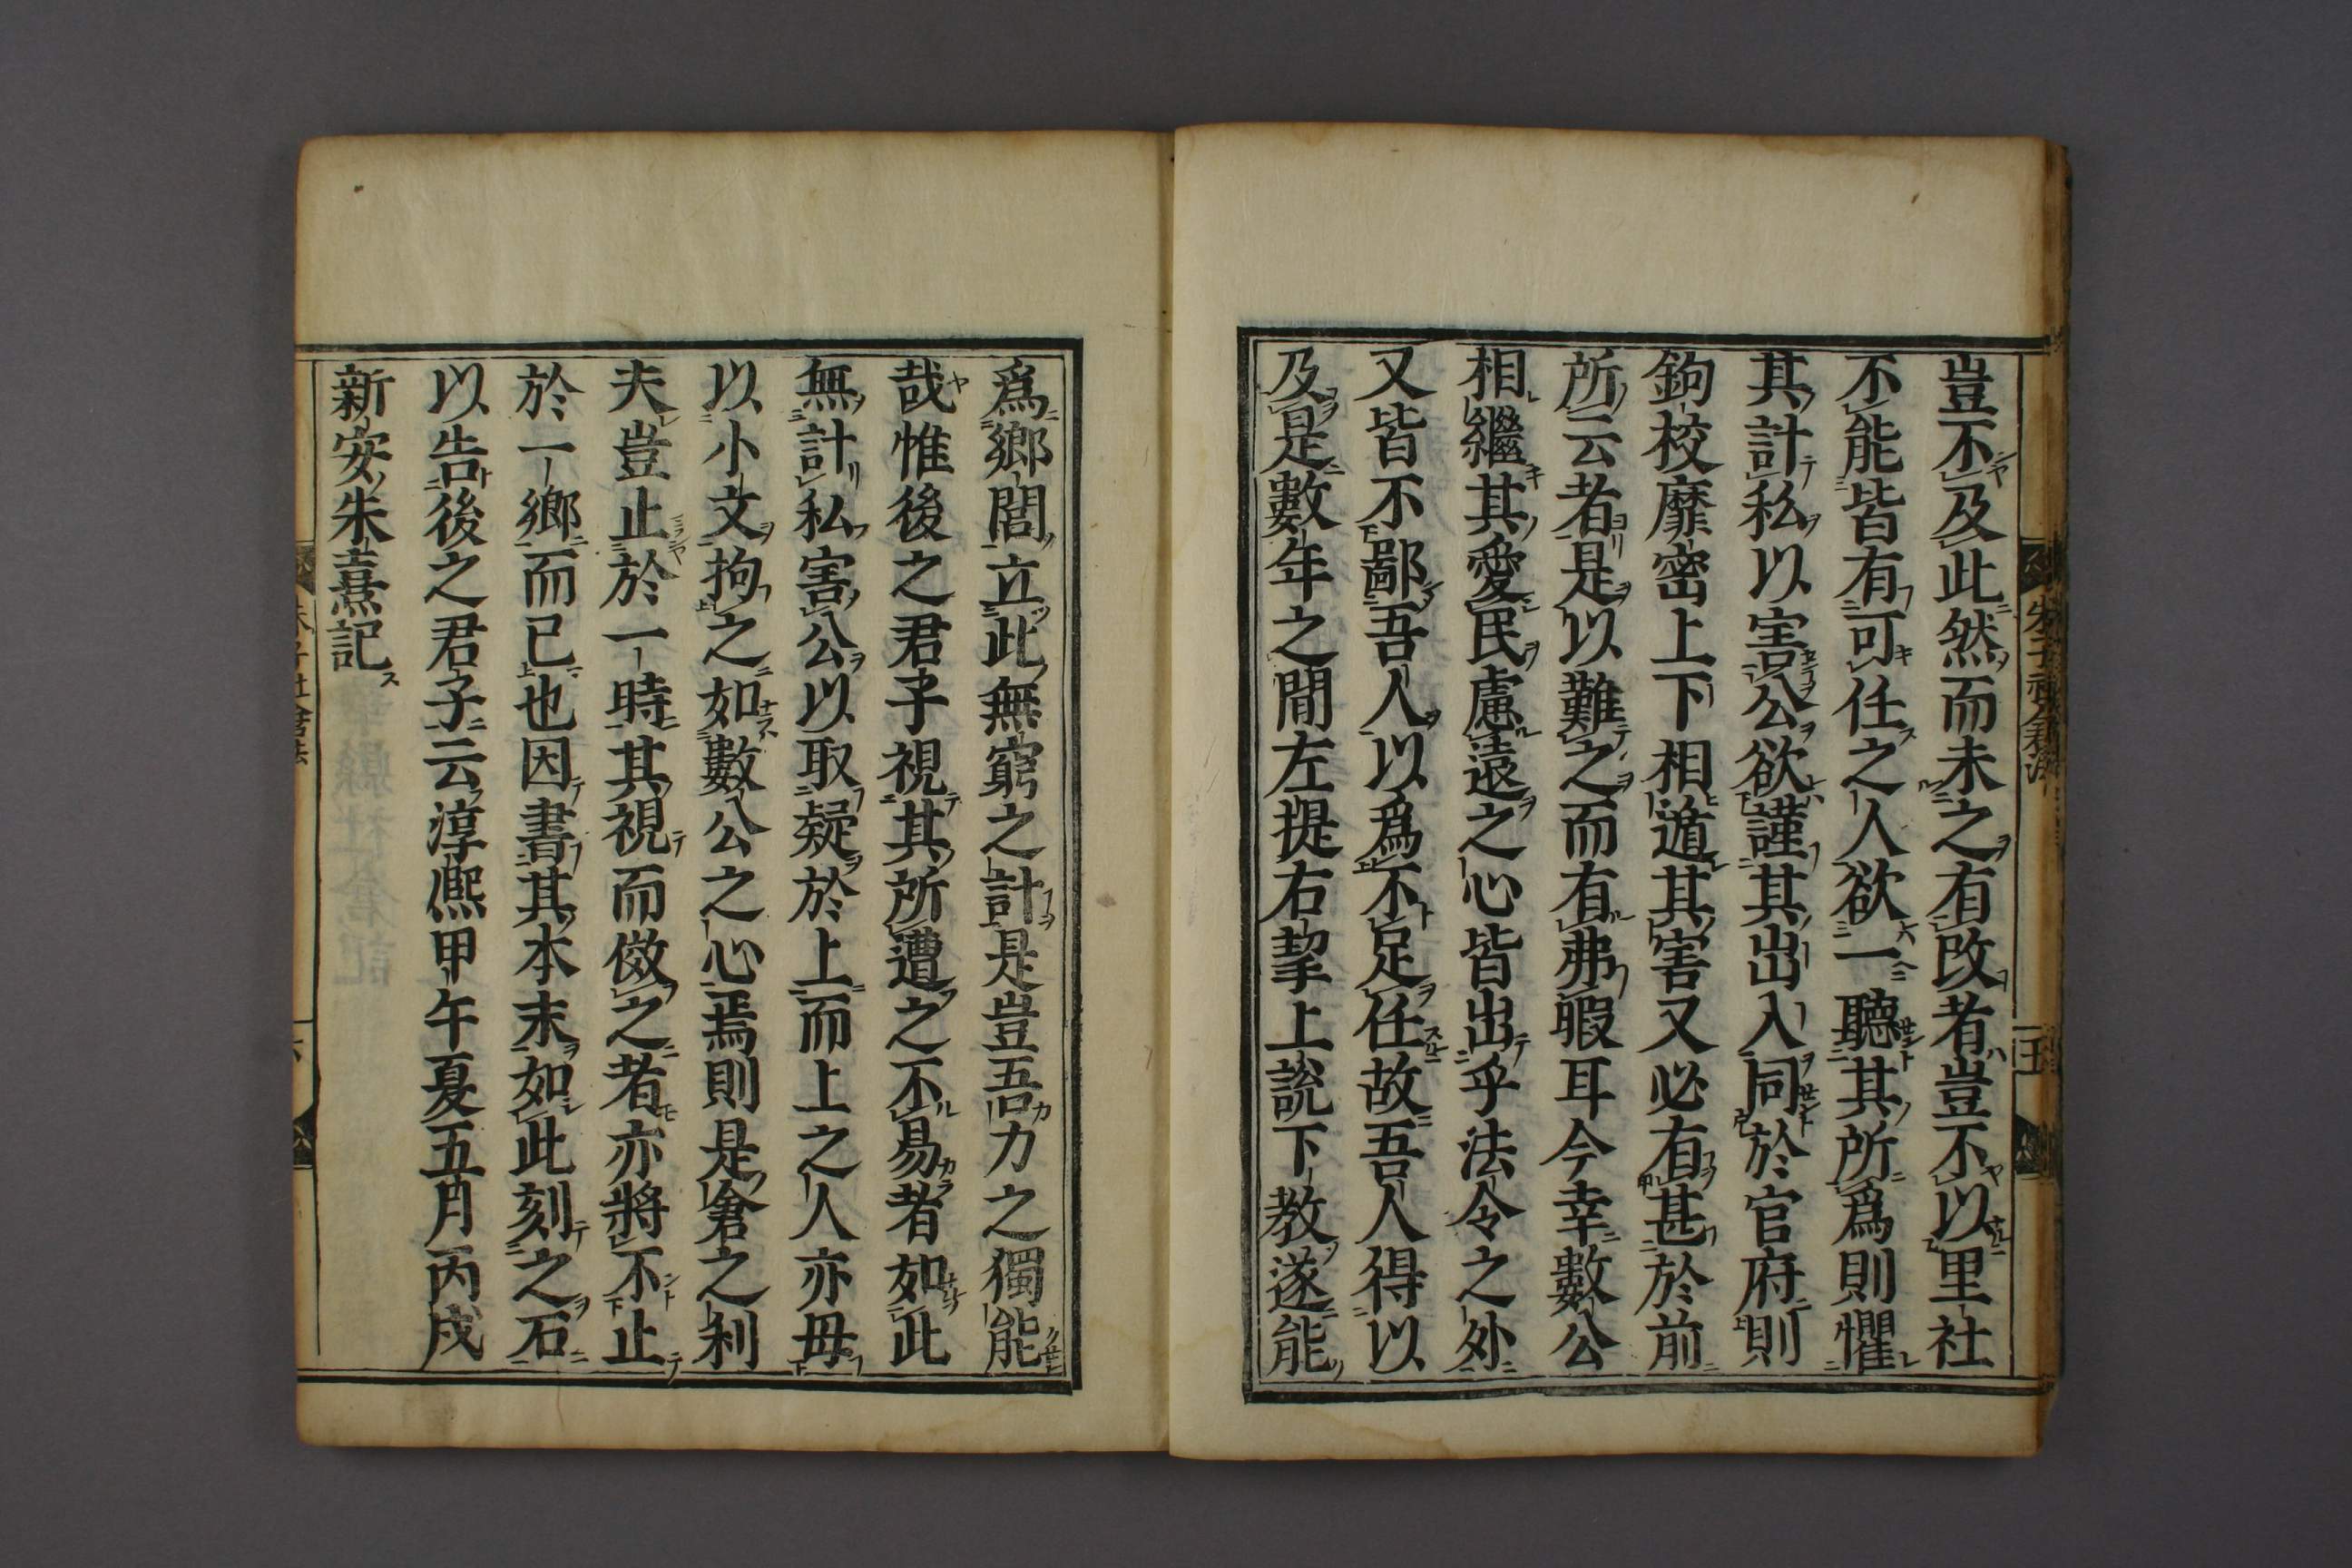 豈不及此然而未之有改者豈不以里社
不能皆有可任之人欲一聽其所爲則懼
其計私以害公欲謹其出入同於官府則
鉤校靡密上下相遁其害又必有甚於前
所云者是以難之而有弗暇耳今幸數公
相繼其愛民慮遠之心皆出乎法令之外
又皆不鄙吾人以爲不足任故吾人得以
及是數年之間左提右挈上說下教遂能
爲鄉閭立此無窮之計是豈吾力之獨能
哉惟後之君子視其所遭之不易者如此
無計私害公以取疑於上而上之人亦毋
以小文拘之如數公之心焉則是倉之利
夫豈止於一時其視而倣之者亦將不止
於一鄉而已也因書其本末如此刻之石
以告後之君子云淳熈甲午夏五月丙戌
新安朱熹記
朱子社倉法
五